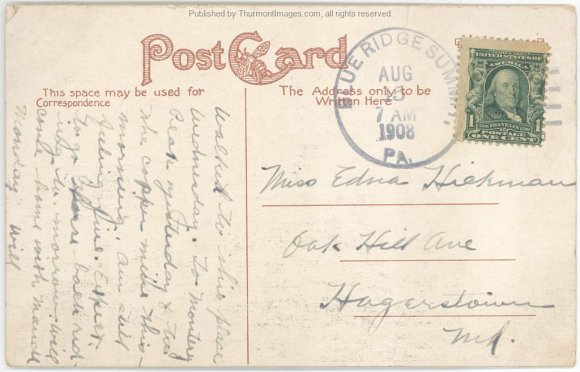 Published by ThurmontImages.com, all rights reserved.
Post Card
This space may be used for
Correspondence
The Address only to be
Written Here
BLUE RIDGE SUMMIT
AUG
7 AM
1908
PA.
UNITED STATES OF AMERICA
FRANKLIN
1 POSTAGE 1
ONE CENT
Miss Edna Hickman
Oak Hill Ave
Hagerstown
Md.
Walked to this place
Wednesday. To Monterey
Peak yesterday & to
the copper mine this
morning. Am still
feeling fine. Expect
to go back
to morrow. Will
come home with Maude
Monday
will